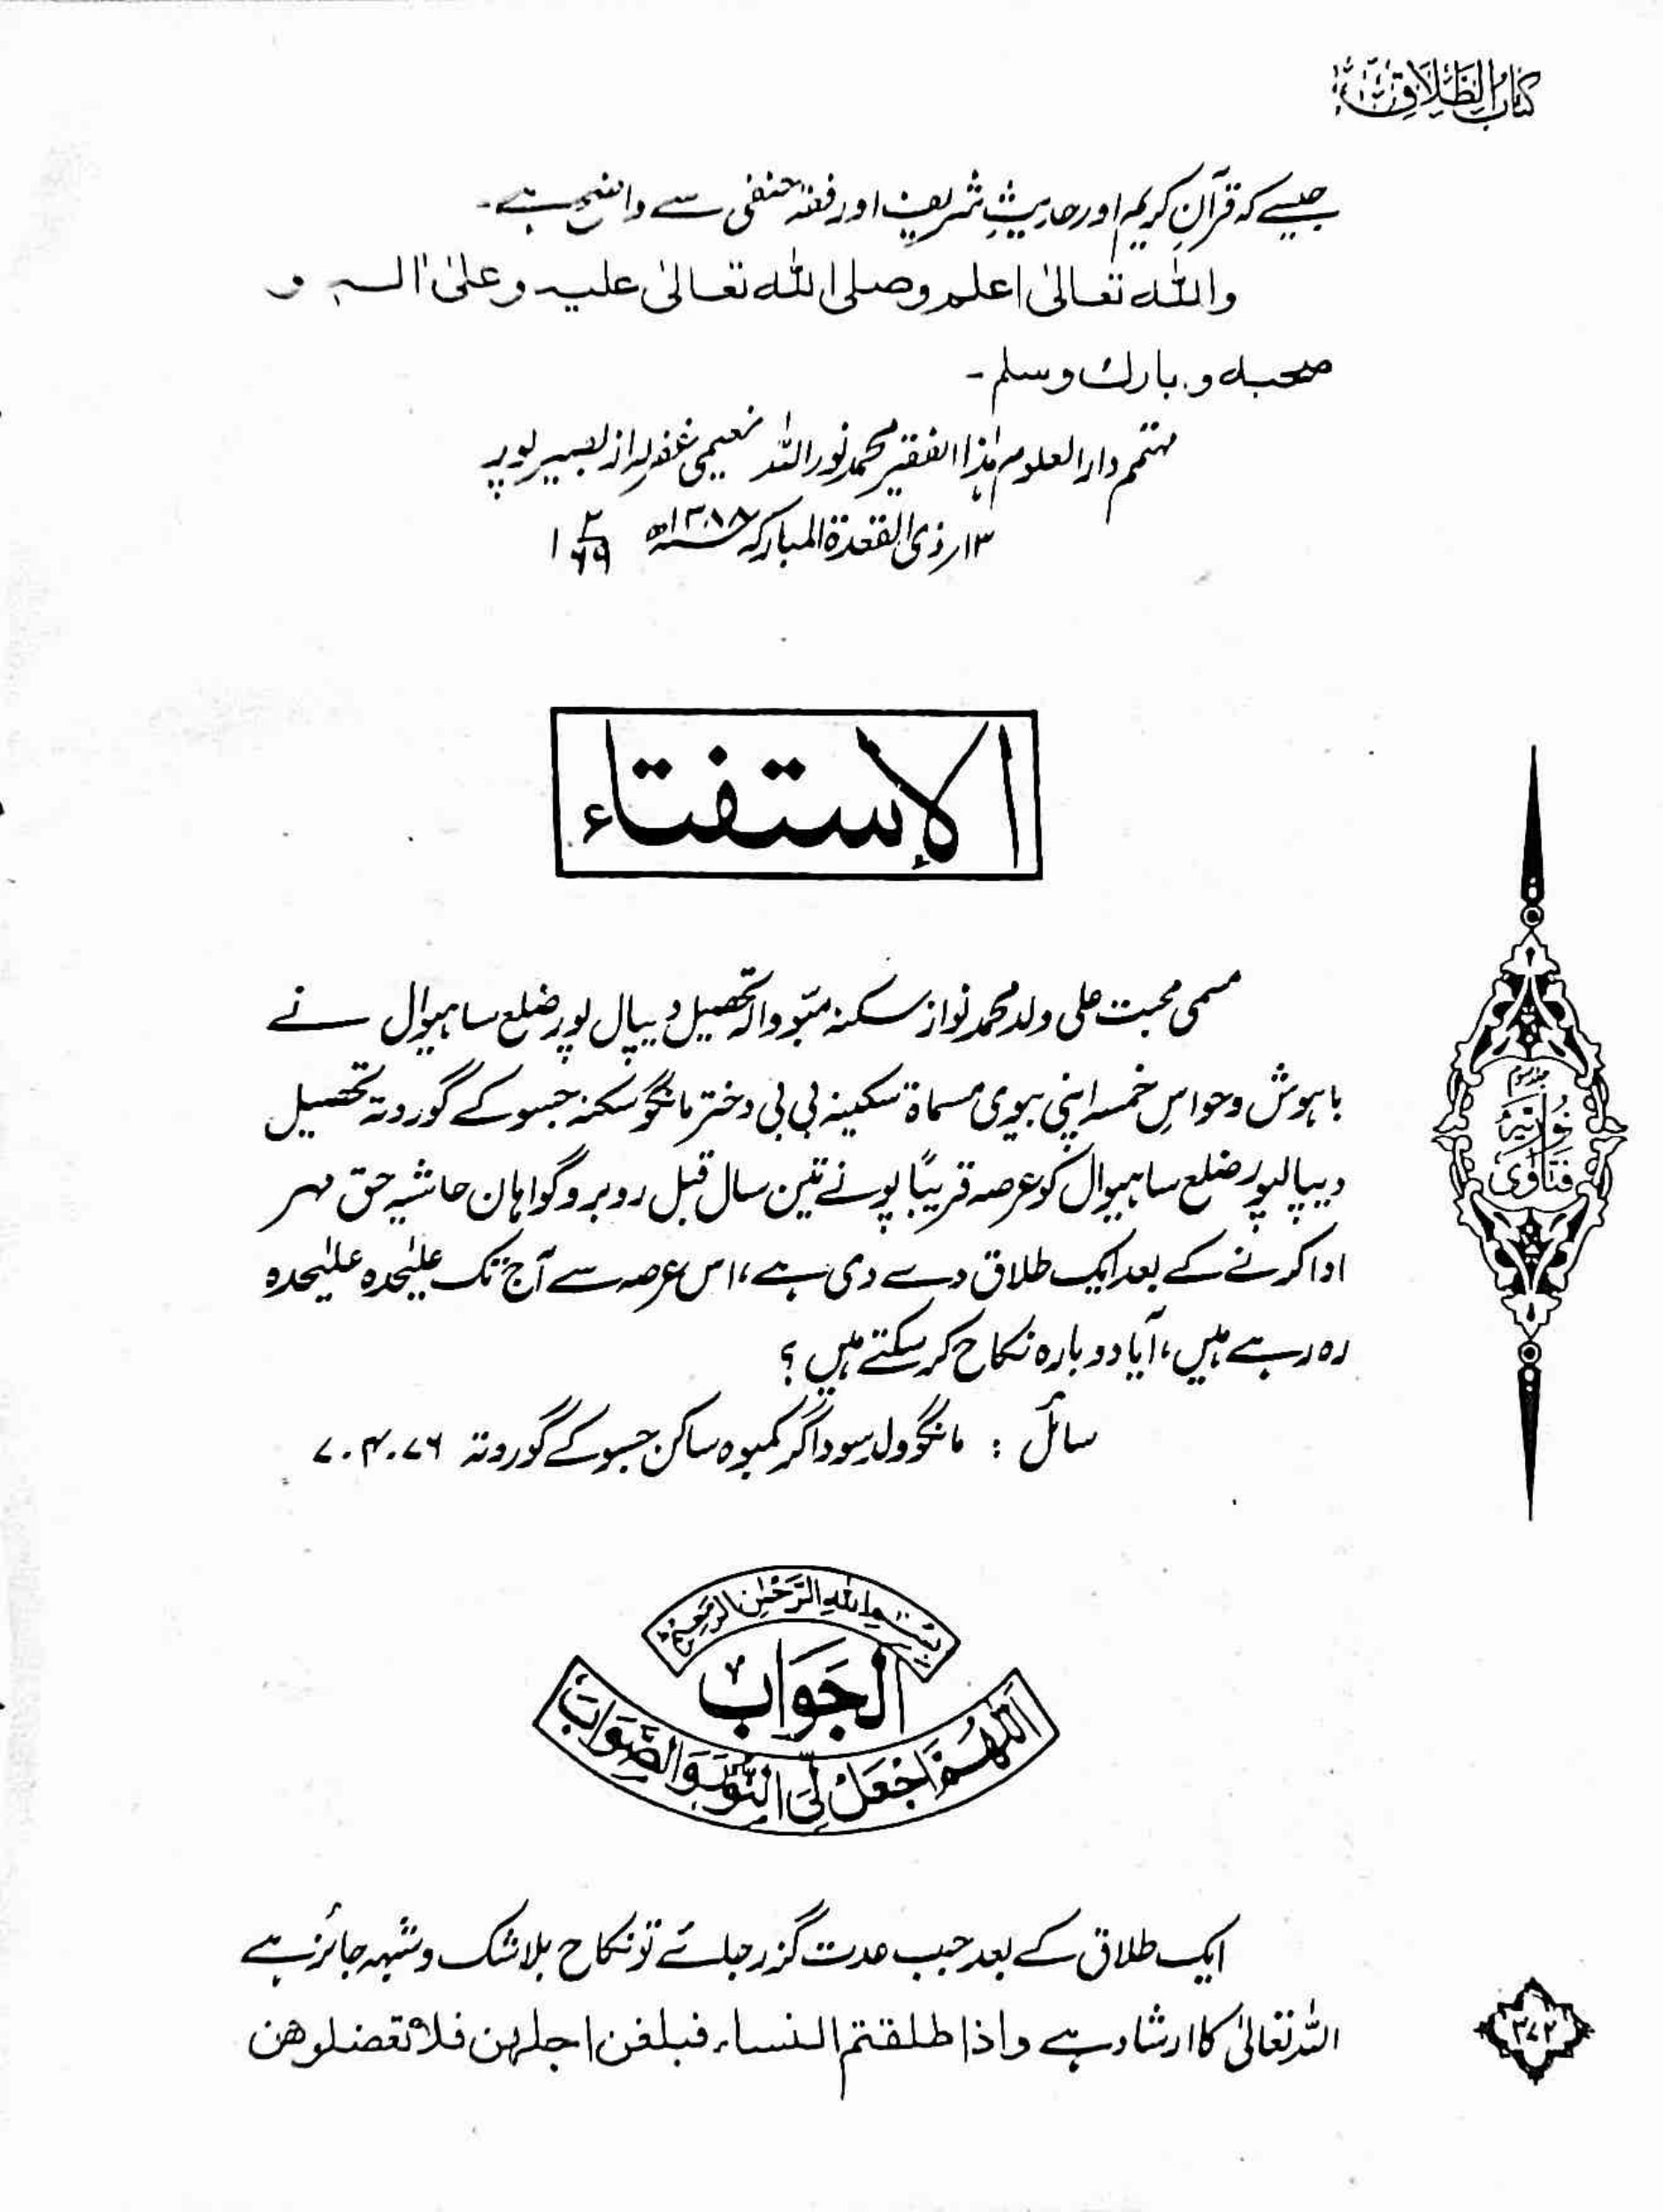 کتاب الطلاق
جیسے کہ قرآنِ کریم اور حدیثِ شریف اور فقہ حنفی سے واضح ہے۔
واللہ تعالیٰ اعلم وصلی اللہ تعالیٰ علیہ وعلیٰ اٰلہ و
صحبہ و بارک وسلم۔
مہتمم دارالعلوم ہٰذا الفقیر محمد نور اللہ نعیمی غفرلہ از بصیر پور
۱۳؍ذی القعدۃ المبارکہ ۱۳۸۸ھ ۱ ۲/۶۹
الاستفتاء
مسمی محبت علی ولد محمد نواز سکنہ تحصیل دیپال پور ضلع ساہیوال نے
باہوش و حواسِ خمسہ اپنی بیوی مسماۃ سکینہ بی بی دختر مانگو سکنہ جسو کے گورو تہ تحصیل
دیپالپور ضلع ساہیوال کو عرصہ قریبًا پونے تین سال قبل روبرو گواہان حاشیہ حق مہر
ادا کرنے کے بعد ایک طلاق دے دی ہے، اس عرصہ سے آج تک علیٰحدہ علیٰحدہ
رہ رہے ہیں، آیا دوبارہ نکاح کر سکتے ہیں؟
سائل : مانگو ولد سوداگر کمبوہ ساکن جسو کے گورو تہ ۷۶۔۴۔۷
بسم اللہ الرحمٰن الرحیم
الجواب
اللّٰھم اجعل لی النور والصواب
ایک طلاق کے بعد جب عدت گزر جائے تو نکاح بلا شک و شبہہ جائز ہے
اللہ تعالیٰ کا ارشاد ہے واذا طلقتم النساء فبلغن اجلہن فلا تعضلوھن
فتاویٰ نوریہ
۳۷۲